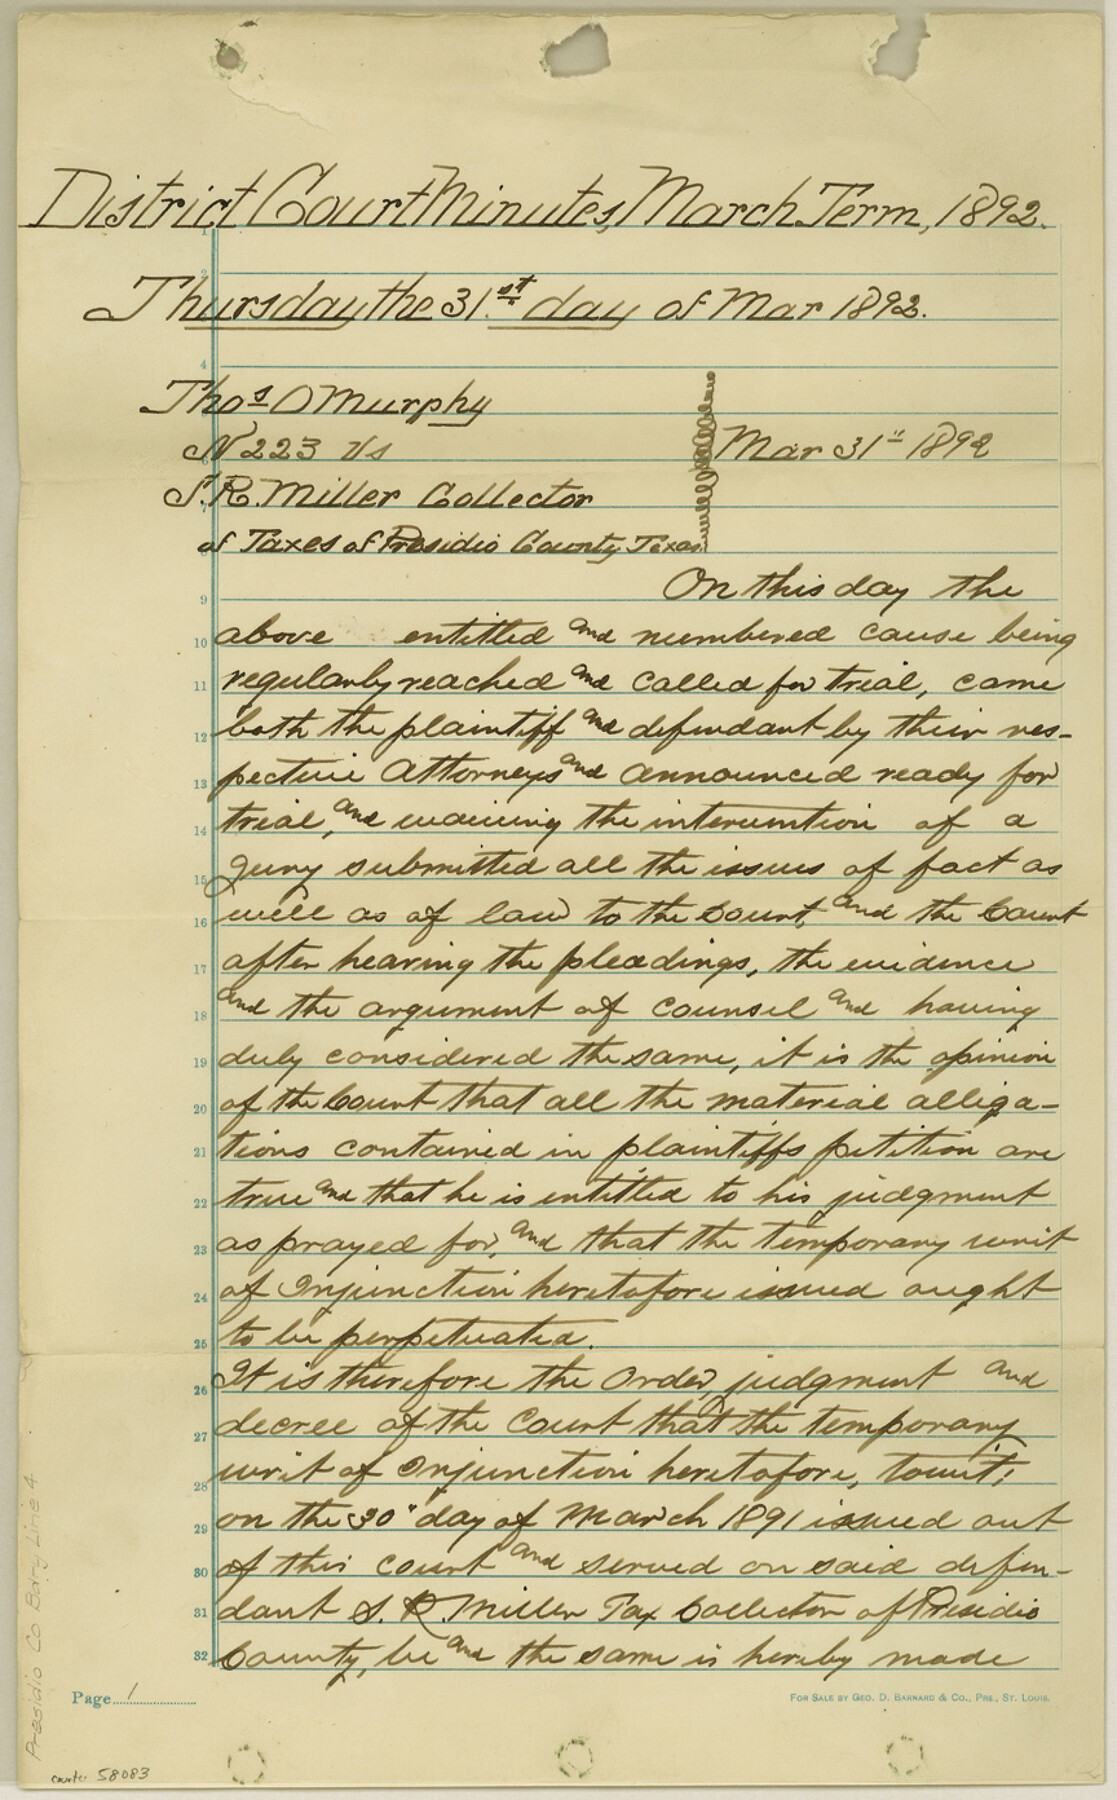 District Court Minutes, March Term, 1892.
Thursday the 31st day of Mar 1892.
Thos O Murphy
N 223 Vs
Mar 31" 1892
S.R. Miller Collector
of Taxes of Presidio County Texas
On this day the
above entitled and numbered cause being
regularly reached and called for trial, came
both the plaintiff and defendant by their res-
pective Attorneys and announced ready for
trial, and waiving the intervention of a
Jury submitted all the issues of fact as
well as of law to the Court, and the Court
after hearing the pleadings, the evidence
and the argument of counsel and having
duly considered the same, it is the opinion
of the Court that all the material allega-
tions contained in plaintiffs petition are
true and that he is entitled to his judgment
as prayed for, and that the temporary writ
of Injunction heretofore issued ought
to be perpetuated.
It is therefore the Order, judgment and
decree of the Court that the temporary
writ of Injunction heretofore, towit;
on the 30" day of March 1891 issued out
of this court and served on said defen-
dant S. R. Miller Tax Collector of Presidio
County, be and the same is hereby made
1
2
4
6
7
8
9
10
11
12
13
14
15
16
17
18
19
20
21
22
23
24
25
26
27
28
29
30
31
32
Page 1
FOR SALE BY GEO. D. BARNARD & CO., PRS., ST. LOUIS.
Presidio Co Bdry Line 4
counter 58083